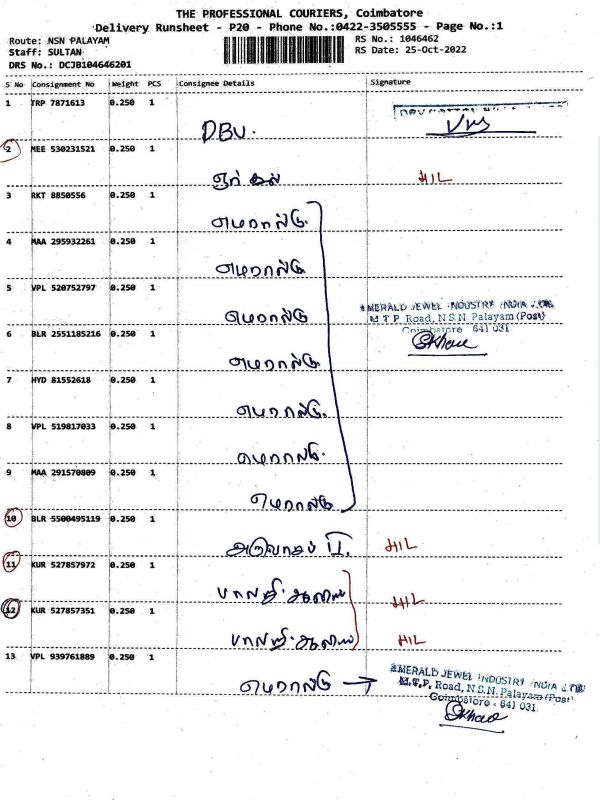 THE PROFESSIONAL COURIERS, Coimbatore
Delivery Runsheet - P20 - Phone No.:0422-3505555 - Page No.:1
Route: NSN PALAYAM
RS No.: 1046462
Staff: SULTAN
RS Date: 25-Oct-2022
DRS No.: DCJB104646201
S No Consignment No Weight PCS Consignee Details Signature
1 TRP 7871613 0.250 1
DBV.
2 MEE 530231521 0.250 1
MIL
3 RKT 8850556 0.250 1
எமரால்டு
4 MAA 295932261 0.250 1
எமரால்டு
5 VPL 520752797 0.250 1
எமரால்டு
EMERALD JEWEL INDUSTRY INDIA LTD
M.T.P. Road, N.S.N. Palayam (Post)
Coimbatore 641 031
6 BLR 2551185216 0.250 1
எமரால்டு
7 HYD 81552618 0.250 1
எமரால்டு
8 VPL 519817033 0.250 1
எமரால்டு
9 MAA 291570809 0.250 1
எமரால்டு
10 BLR 5500495119 0.250 1
MIL
11 KUR 527857972 0.250 1
MIL
12 KUR 527857351 0.250 1
MIL
13 VPL 939761889 0.250 1
எமரால்டு →
EMERALD JEWEL INDUSTRY INDIA LTD
M.T.P. Road, N.S.N. Palayam (Post)
Coimbatore - 641 031